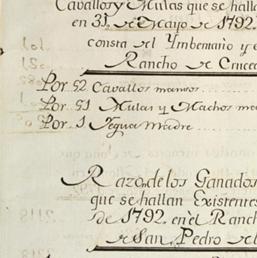 Cavallos y Mulas que se halla
en 31 de Mayo de 1792
consta del Ymbentario y e
Rancho de Cruce
Por 52 Cavallos mansos
Por 51 Mulas y Machos ma
Por 1 Yegua Madre
Razo, de los Ganados
que se hallan Existentes
de 1792 en el Ranch
de San Pedro de l